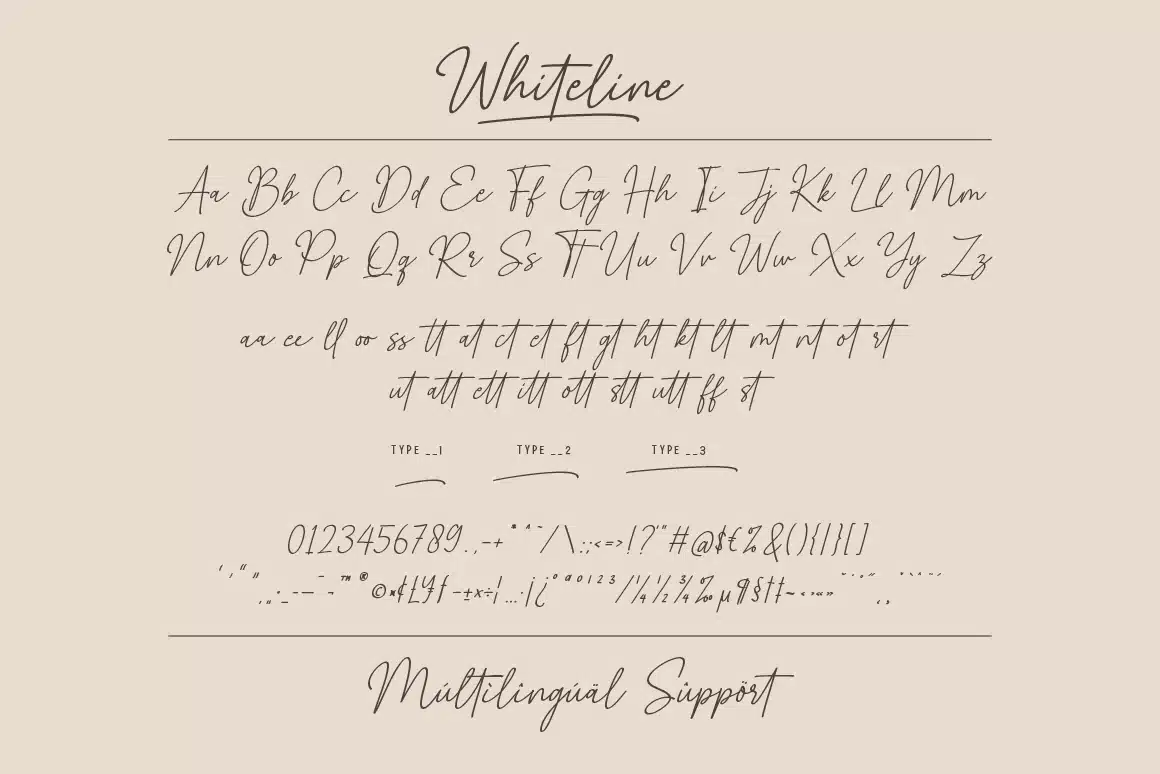 Whiteline
Aa Bb Cc Dd Ee Ff Gg Hh Ii Jj Kk Ll Mm
Nn Oo Pp Qq Rr Ss Tt Uu Vv Ww Xx Yy Zz
aa ee ll oo ss tt at ct et ft gt ht kt lt mt nt ot rt
ut att ett itt ott stt utt ff st
TYPE __1 TYPE __2 TYPE __3
0123456789.,-+*^~/\:;<=>!?'"#@$€%&(){|}[]
‘ ’ “ ” ‚ „ · _ - — ¯ ¬ ™ ® © ¤ ¢ £ ¥ ƒ − ± × ÷ ¦ … · ¡ ¿ º ª 0 1 2 3 / ¼ ½ ¾ ‰ µ ¶ § † ‡ ~ ‹ › « »
Múltìlîngúäl Sûppört